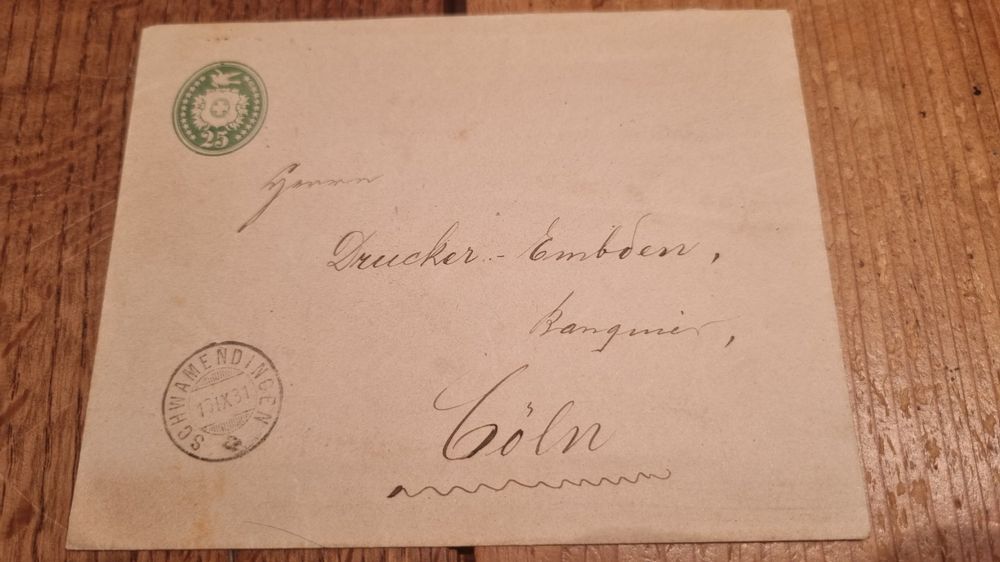 25
Herrn
Drucker-Embden,
Banquier,
Cöln
SCHWAMENDINGEN